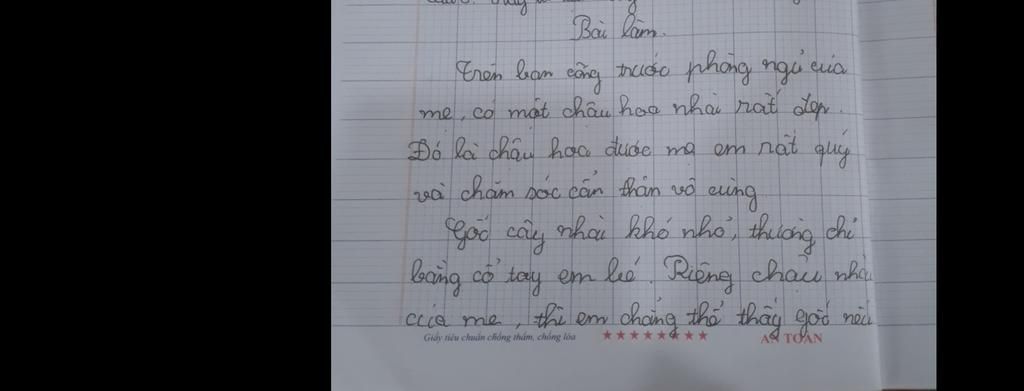 Bài làm.
Trên ban công trước phòng ngủ của
mẹ, có một chậu hoa nhài rất đẹp.
Đó là chậu hoa được mẹ em rất quý
và chăm sóc cẩn thận vô cùng
Gốc cây nhài khó nhỏ, thường chỉ
bằng cổ tay em bé. Riêng chậu nhài
của mẹ, thì em chẳng thể thấy gốc nếu
Giấy tiêu chuẩn chống thấm, chống lóa ★★★★★★★★ AN TOÀN